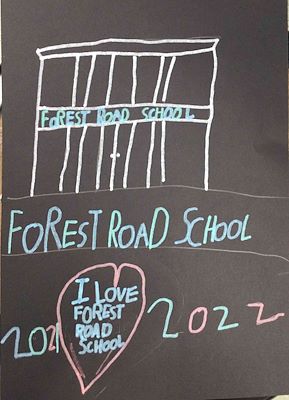 FOREST ROAD SCHOOL
FOREST ROAD SCHOOL
I LOVE
FOREST
ROAD
SCHOOL
2021 2022